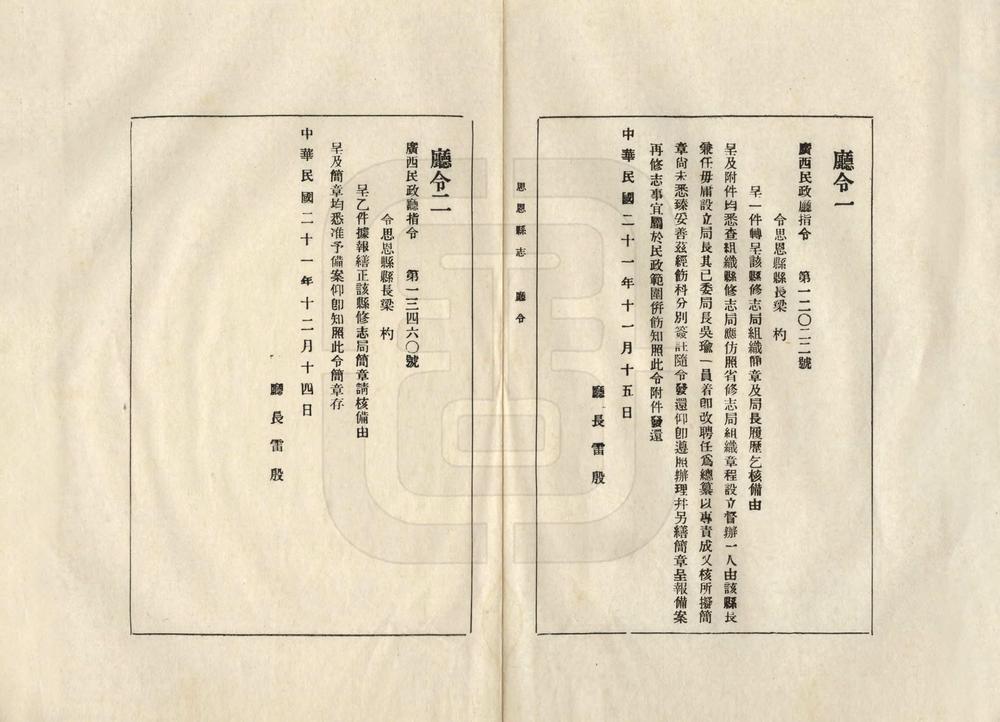 廳令一
廣西民政廳指令　第一二〇三二號
令思恩縣縣長梁　杓
呈一件轉呈該縣修志局組織簡章及局長履歷乞核備由
呈及附件均悉查組織縣修志局應仿照省修志局組織章程設立督辦一人由該縣長
兼任毋庸設立局長其已委局長吳瑜一員着卽改聘任爲總纂以專責成又核所擬簡
章尚未悉臻妥善茲經飭科分別簽註隨令發還仰卽遵照辦理幷另繕簡章呈報備案
再修志事宜屬於民政範圍倂飭知照此令附件發還
中華民國二十一年十一月十五日
廳長雷殷
思恩縣志　廳令
廳令二
廣西民政廳指令　第一三四六〇號
令思恩縣縣長梁　杓
呈乙件據報繕正該縣修志局簡章請核備由
呈及簡章均悉准予備案仰卽知照此令簡章存
中華民國二十一年十二月十四日
廳長雷殷